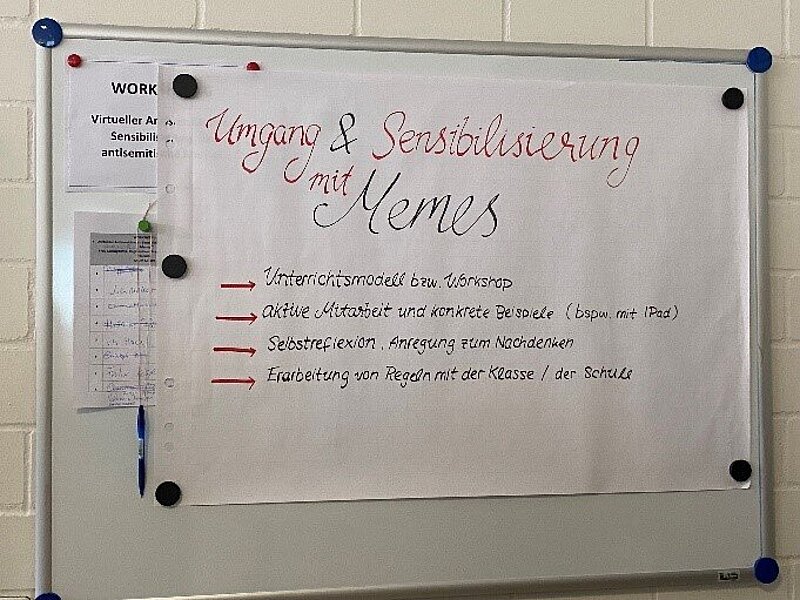 WORK
Virtueller An
Sensibilis
antisemiti
Umgang & Sensibilisierung
mit Memes
→ Unterrichtsmodell bzw. Workshop
→ aktive Mitarbeit und konkrete Beispiele (bspw. mit IPad)
→ Selbstreflexion, Anregung zum Nachdenken
→ Erarbeitung von Regeln mit der Klasse / der Schule